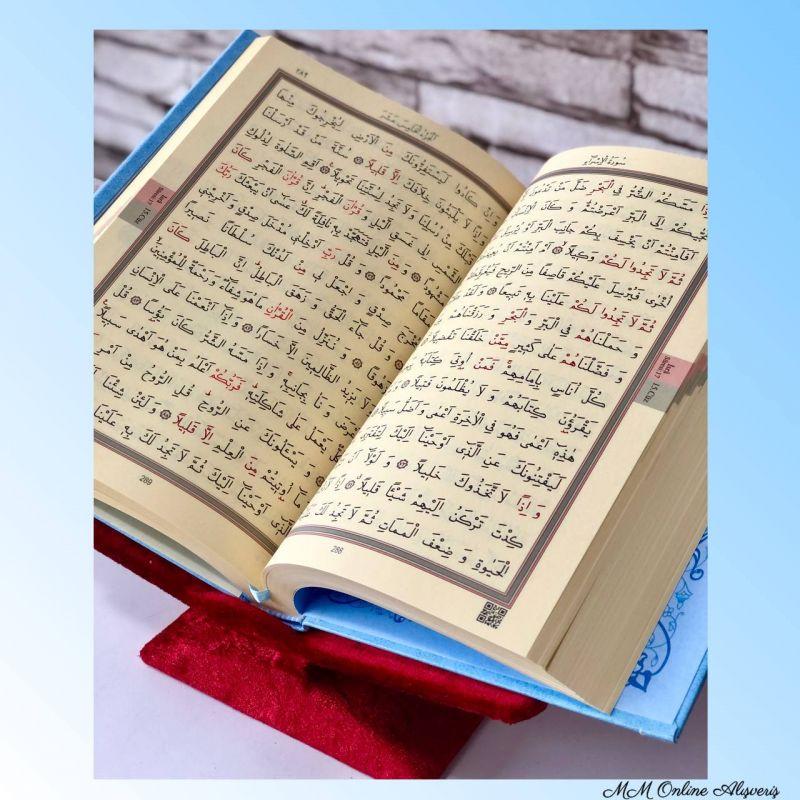 سُورَةُ الْاِسْرَاءِ
ذَا مَسَّكُمُ الضُّرُّ فِي الْبَحْرِ ضَلَّ مَنْ تَدْعُونَ
نَجّٰيكُمْ اِلَى الْبَرِّ اَعْرَضْتُمْ وَ كَانَ الْاِنْسَانُ
اَفَاَمِنْتُمْ اَنْ يَخْسِفَ بِكُمْ جَانِبَ الْبَرِّ اَوْ يُرْسِلَ
ثُمَّ لَا تَجِدُوا لَكُمْ وَكِيلًا اَمْ اَمِنْتُمْ اَنْ
اُخْرٰى فَيُرْسِلَ عَلَيْكُمْ قَاصِفًا مِنَ الرِّيحِ
ثُمَّ لَا تَجِدُوا لَكُمْ عَلَيْنَا بِهِ تَبِيعًا وَ لَقَدْ
وَ حَمَلْنَاهُمْ فِي الْبَرِّ وَ الْبَحْرِ وَ رَزَقْنَاهُمْ
وَ فَضَّلْنَاهُمْ عَلٰى كَثِيرٍ مِمَّنْ خَلَقْنَا تَفْضِيلًا
كُلَّ اُنَاسٍ بِاِمَامِهِمْ فَمَنْ اُوتِيَ كِتَابَهُ
يَقْرَؤُنَ كِتَابَهُمْ وَ لَا يُظْلَمُونَ فَتِيلًا
هٰذِهِ اَعْمٰى فَهُوَ فِي الْاٰخِرَةِ اَعْمٰى وَ اَضَلُّ سَبِيلًا
لَيَفْتِنُونَكَ عَنِ الَّذِي اَوْحَيْنَا اِلَيْكَ لِتَفْتَرِيَ
وَ اِذًا لَاتَّخَذُوكَ خَلِيلًا ﴿٧٣﴾ وَ لَوْلَا اَنْ
كِدْتَ تَرْكَنُ اِلَيْهِمْ شَيْئًا قَلِيلًا ﴿٧٤﴾ اِذًا
الْحَيٰوةِ وَ ضِعْفَ الْمَمَاتِ ثُمَّ لَا تَجِدُ لَكَ
288
İsrâ
Sûresi 17
15.Cüz
٢٨٩
اَلْجُزْءُ الْخَامِسَ عَشَرَ
وَ اِنْ كَادُوا لَيَسْتَفِزُّونَكَ مِنَ الْاَرْضِ لِيُخْرِجُوكَ مِنْهَا
وَ اِذًا لَا يَلْبَثُونَ خِلَافَكَ اِلَّا قَلِيلًا سُنَّةَ مَنْ قَدْ اَرْسَلْنَا
قَبْلَكَ مِنْ رُسُلِنَا وَ لَا تَجِدُ لِسُنَّتِنَا تَحْوِيلًا اَقِمِ الصَّلٰوةَ لِدُلُوكِ
الشَّمْسِ اِلٰى غَسَقِ الَّيْلِ وَ قُرْاٰنَ الْفَجْرِ اِنَّ قُرْاٰنَ الْفَجْرِ كَانَ
مَشْهُودًا وَ مِنَ الَّيْلِ فَتَهَجَّدْ بِهِ نَافِلَةً لَكَ عَسٰى اَنْ يَبْعَثَكَ رَبُّكَ
مَقَامًا مَحْمُودًا وَ قُلْ رَبِّ اَدْخِلْنِي مُدْخَلَ صِدْقٍ وَ اَخْرِجْنِي
صِدْقٍ وَ اجْعَلْ لِي مِنْ لَدُنْكَ سُلْطَانًا نَصِيرًا
وَ قُلْ جَاءَ الْحَقُّ وَ زَهَقَ الْبَاطِلُ اِنَّ الْبَاطِلَ كَانَ
زَهُوقًا وَ نُنَزِّلُ مِنَ الْقُرْاٰنِ مَا هُوَ شِفَاءٌ وَ رَحْمَةٌ لِلْمُؤْمِنِينَ
لَا يَزِيدُ الظَّالِمِينَ اِلَّا خَسَارًا وَ اِذَا اَنْعَمْنَا عَلَى الْاِنْسَانِ
وَ نَاٰ بِجَانِبِهِ وَ اِذَا مَسَّهُ الشَّرُّ كَانَ يَؤُسًا قُلْ
يَعْمَلُ عَلٰى شَاكِلَتِهِ فَرَبُّكُمْ اَعْلَمُ بِمَنْ هُوَ اَهْدٰى سَبِيلًا
وَ يَسْـَٔلُونَكَ عَنِ الرُّوحِ قُلِ الرُّوحُ مِنْ اَمْرِ
مَا اُوتِيتُمْ مِنَ الْعِلْمِ اِلَّا قَلِيلًا وَ لَئِنْ شِئْنَا
الَّذِي اَوْحَيْنَا اِلَيْكَ ثُمَّ لَا تَجِدُ لَكَ بِهِ عَلَيْنَا
289
İsrâ
Sûresi 17
15.Cüz
MM Online Alışveriş